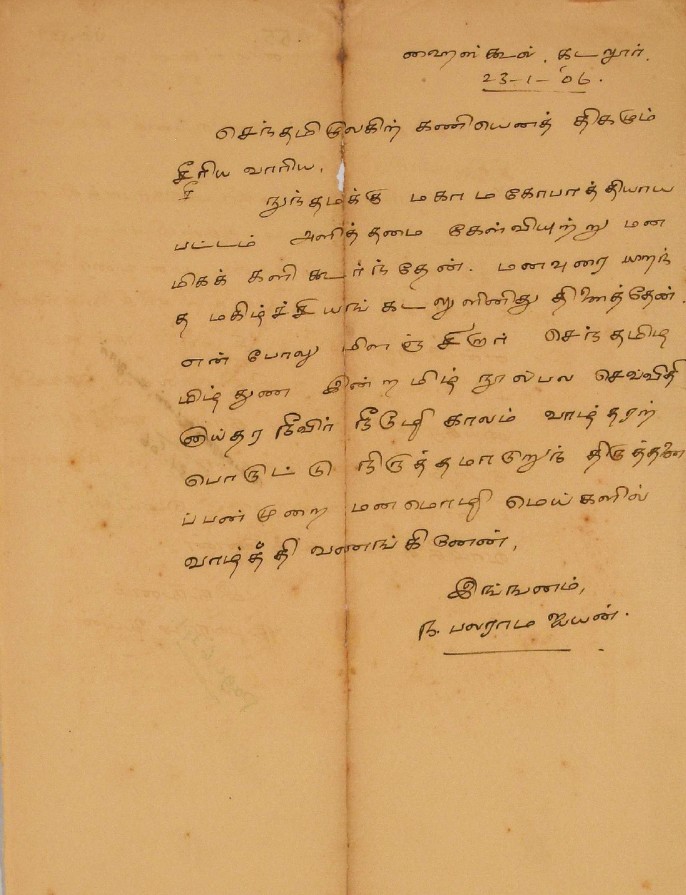 ஹைஸ்கூல், கடலூர்.
23-1-'06.
செந்தமிழுலகிற் கணியெனத் திகழும்
சீரிய வாரிய,
நுந்தமக்கு மகாமகோபாத்தியாய
பட்டம் அளித்தமை கேள்வியுற்று மன
மிகக் களிகூர்ந்தேன். மனவுரை யறந்
த மகிழ்ச்சியங் கடலுளினிது திளைத்தேன்.
என் போலு மிளஞ்சிறார் செந்தமிழ
மிழ்துண இன்றமிழ் நூல்பல செவ்விதி
னுய்தர நீவிர் நீடூழி காலம் வாழ்தரற்
பொருட்டு நிருத்தமாடுறுந் திருத்தனை
ப்பன்முறை மனமொழி மெய்களில்
வாழ்த்தி வணங்கினேன்,
இங்ஙனம்,
ந. பலராம ஐயன்.